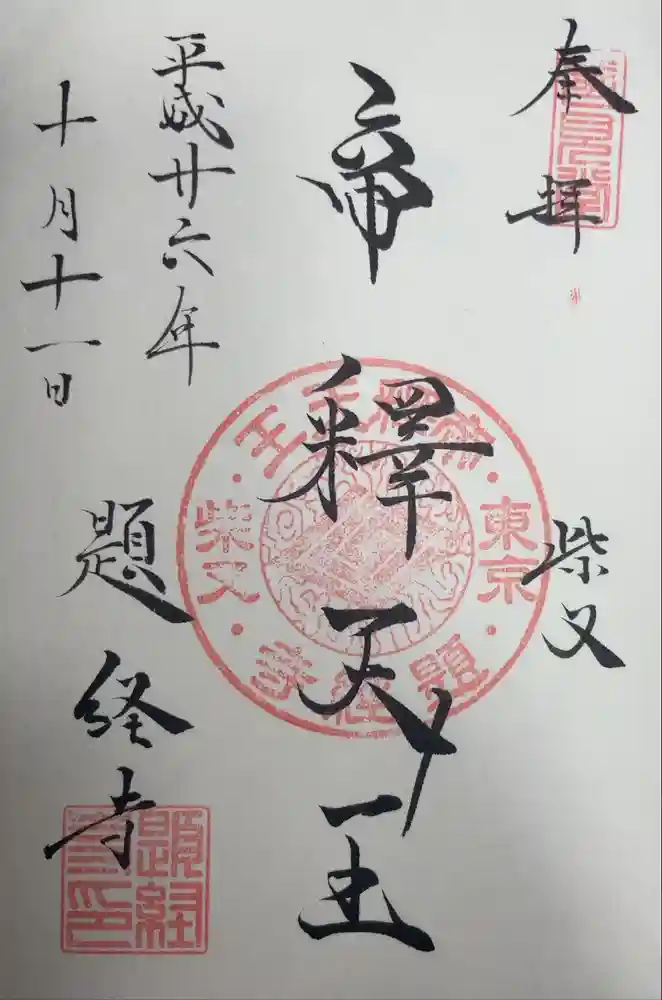 奉拝
柴又
帝釋天王
平成廿六年
十月十一日
題経寺
帝釈天王
東京
柴又
題経寺
題経寺印